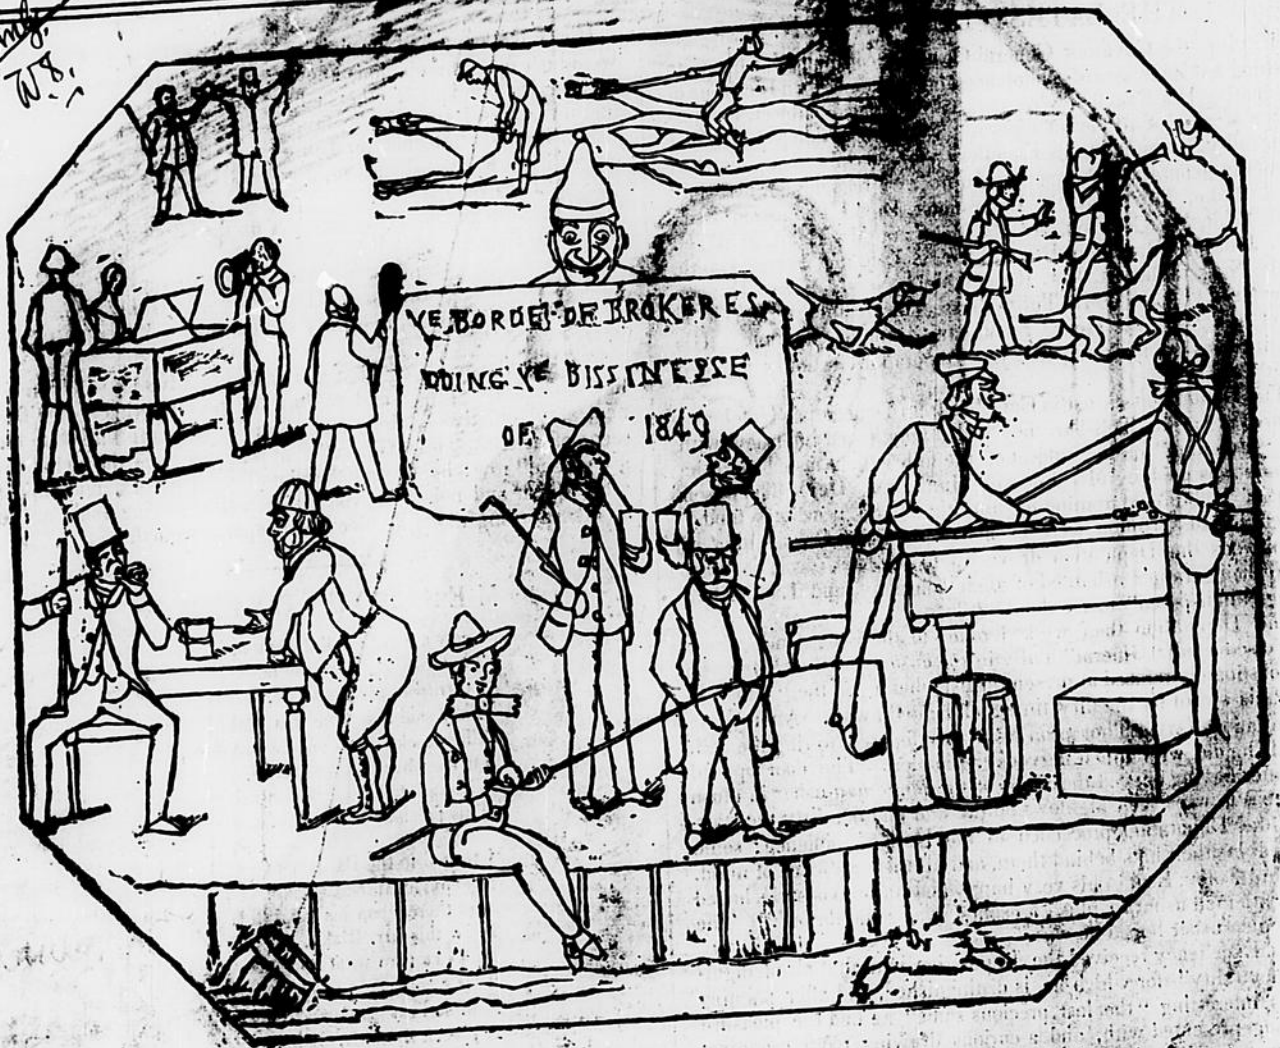 YE BORDE DE BROKERES
DOING YE BISSINESSE
OF 1849